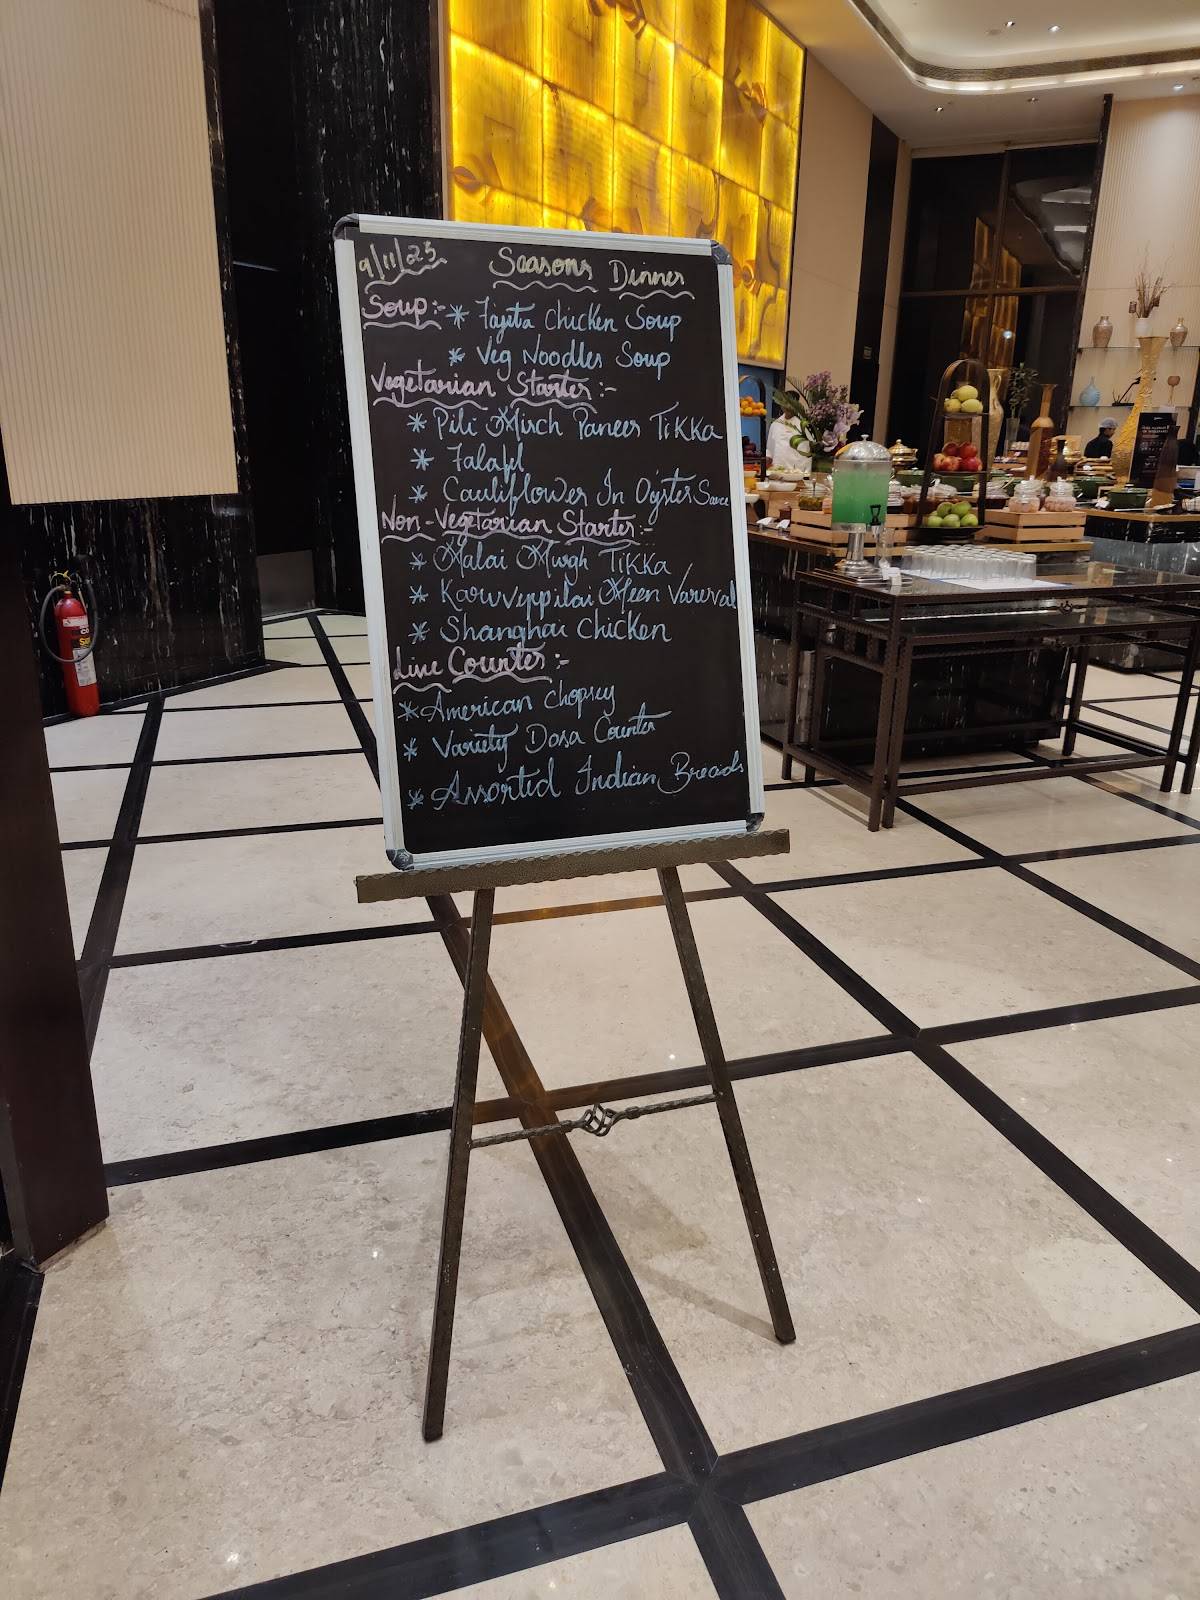 9/11/23 Seasons Dinner
Soup:- * Fajita Chicken Soup
* Veg Noodles Soup
Vegetarian Starter:-
* Pili Mirch Paneer Tikka
* Falafel
* Cauliflower In Oyster Sauce
Non-Vegetarian Starter:-
* Malai Murgh Tikka
* Karuveppilai Meen Varuval
* Shanghai Chicken
Live Counter:-
* American Chopsey
* Variety Dosa Counter
* Assorted Indian Breads